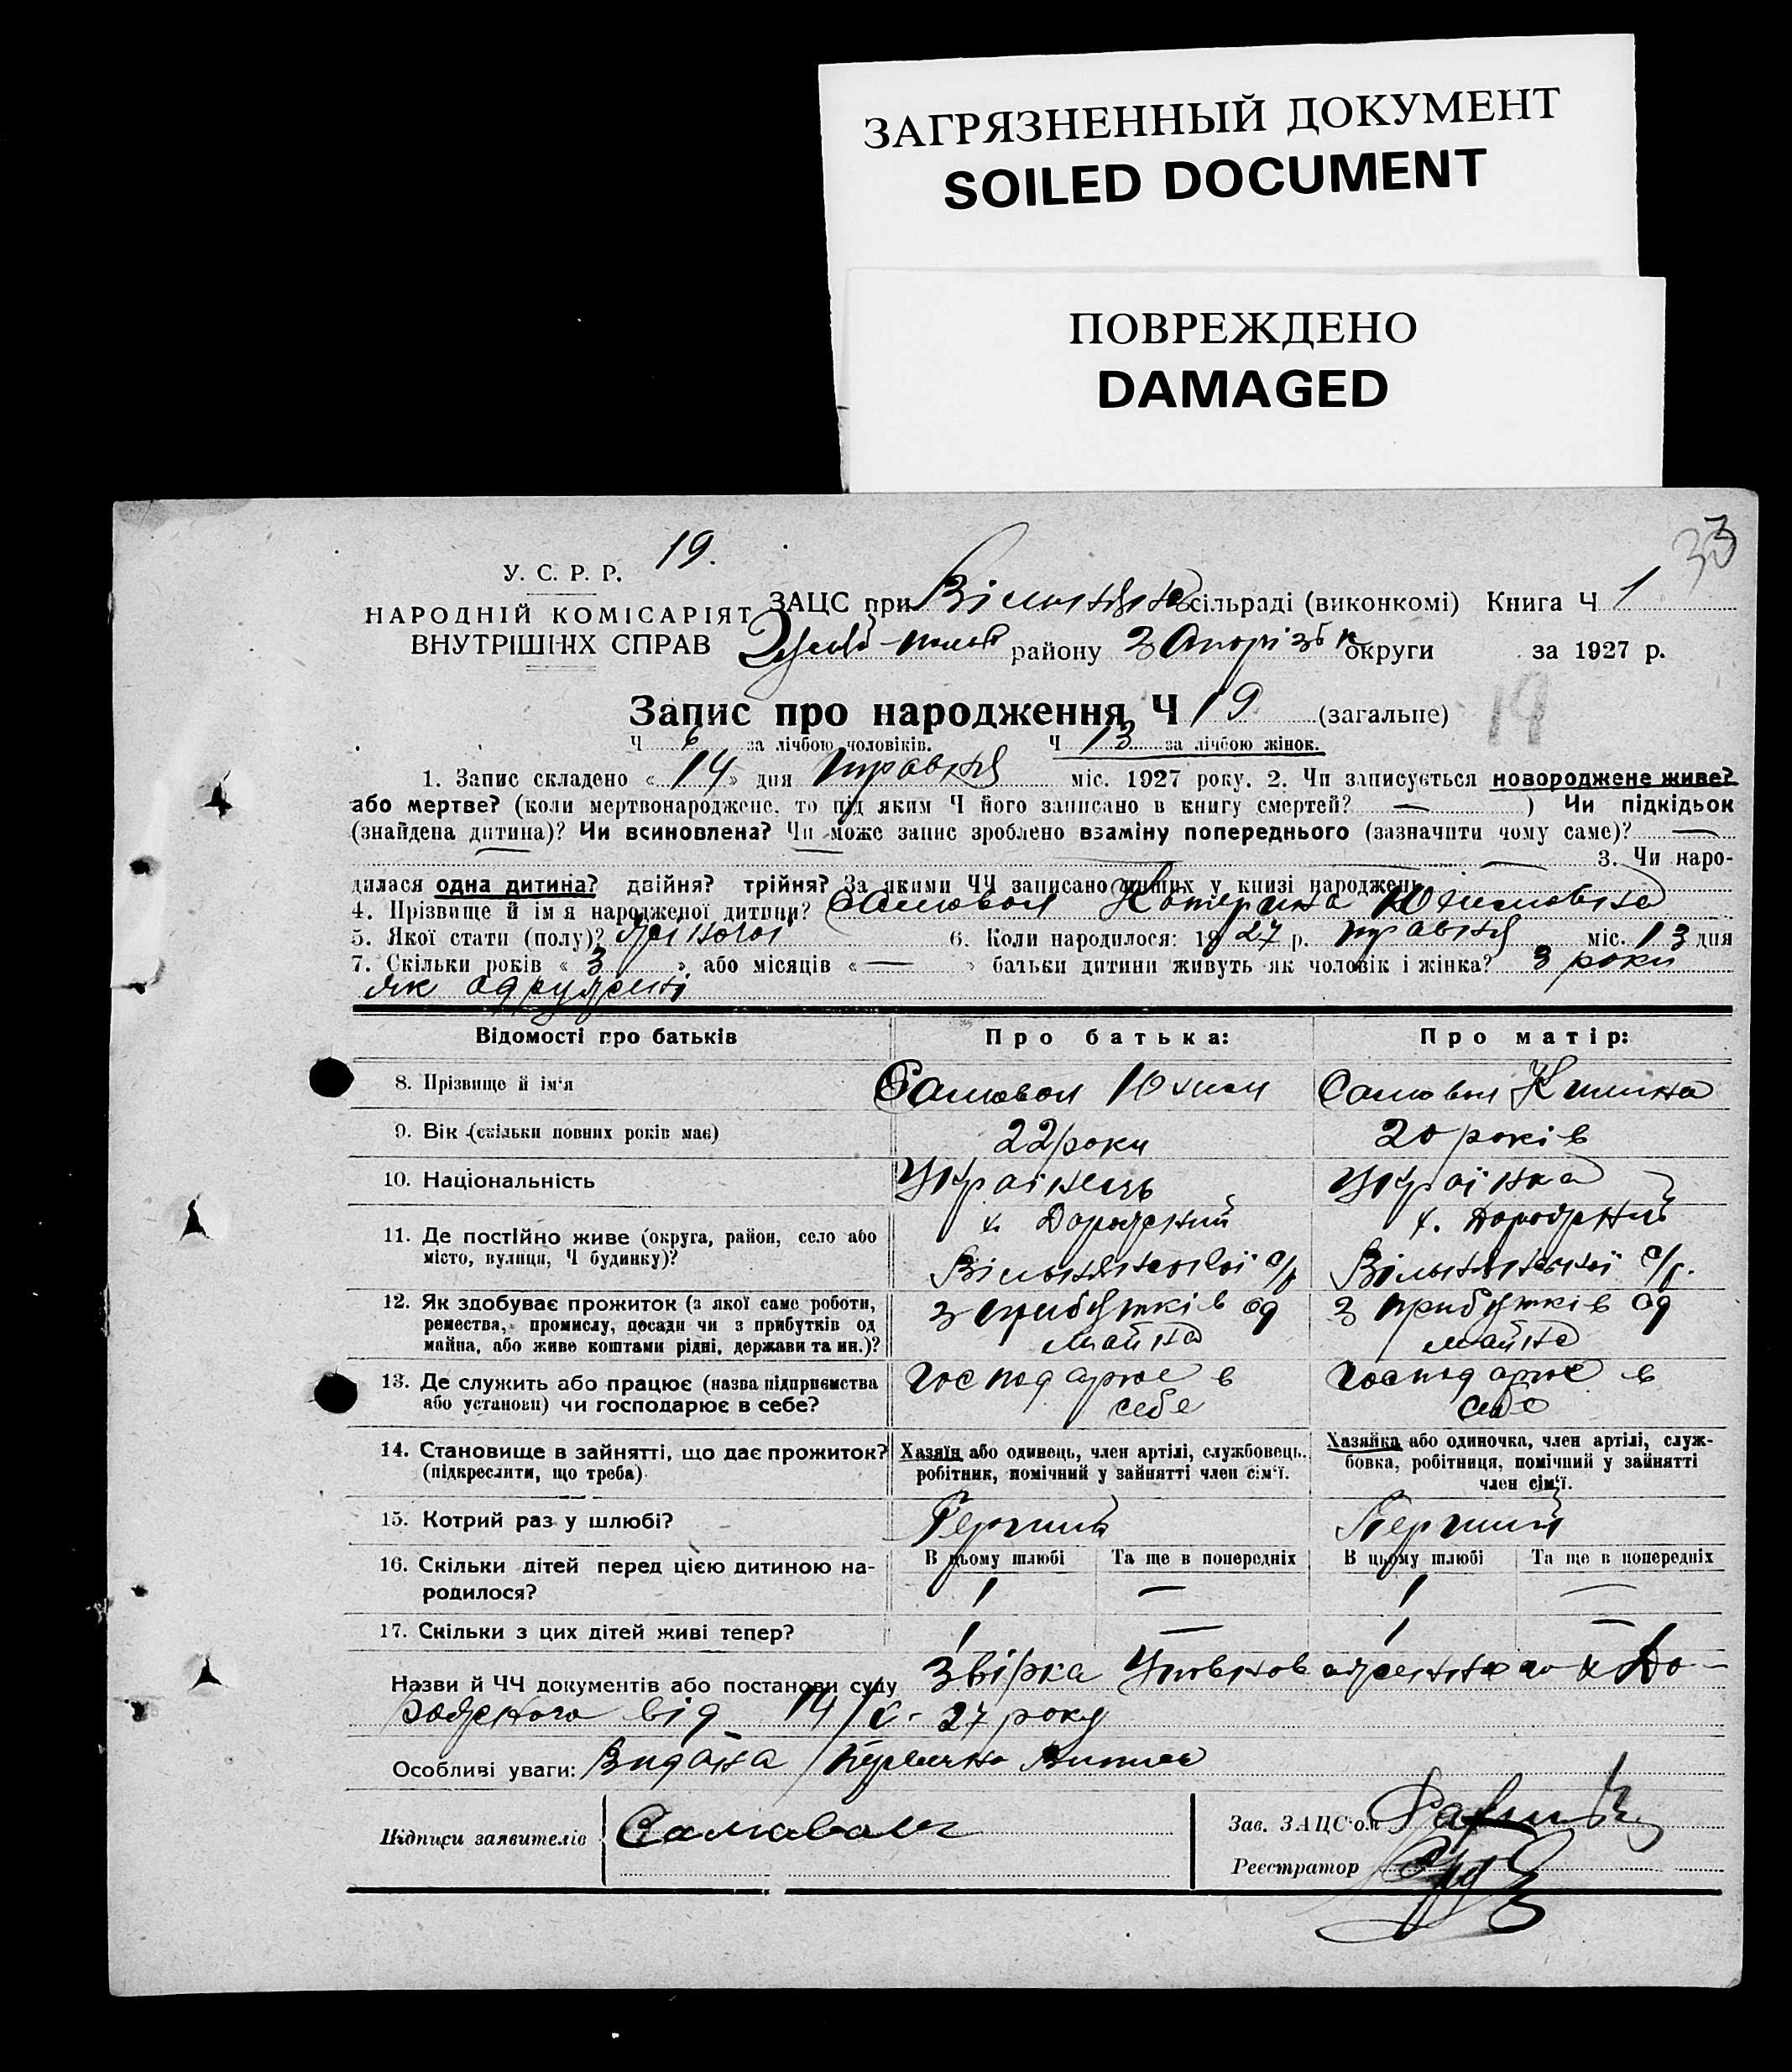 ЗАГРЯЗНЕННЫЙ ДОКУМЕНТ
SOILED DOCUMENT
ПОВРЕЖДЕНО
DAMAGED
33
19.
У. С. Р. Р.
НАРОДНІЙ КОМІСАРІЯТ
ВНУТРІШНІХ СПРАВ
ЗАЦС при сільраді (виконкомі) Книга Ч 1
району Запорізьк округи за 1927 р.
Запис про народження Ч 19 (загальне)
19
Ч 6 за лічбою чоловіків. Ч 13 за лічбою жінок.
1. Запис складено « 14 » дня травня міс. 1927 року. 2. Чи записується новороджене живе?
або мертве? (коли мертвонароджене, то під яким Ч його записано в книгу смертей? — ) Чи підкідьок
(знайдена дитина)? Чи всиновлена? Чи може запис зроблено взаміну попереднього (зазначити чому саме)? —
3. Чи наро-
дилася одна дитина? двійня? трійня? За якими ЧЧ записано инших у книзі народжень
4. Прізвище й ім'я народженої дитини? Самовол Катерина Юхимовна
5. Якої стати (полу)? жіночої 6. Коли народилося: 1927 р. травня міс. 13 дня
7. Скільки років « 3 » або місяців « — » батьки дитини живуть як чоловік і жінка? 3 роки
як одружені
Відомості про батьків
Про батька:
Про матір:
8. Прізвище й ім'я
Самовол Юхим
Самовол
9. Вік (скільки повних років має)
22 роки
20 років
10. Національність
Українець
Українка
11. Де постійно живе (округа, район, село або
місто, вулиця, Ч будинку)?
х. Дорожний
Вільнянської с/р
х. Дорожний
Вільнянської с/р.
12. Як здобуває прожиток (з якої саме роботи,
ремества, промислу, посади чи з прибутків од
майна, або живе коштами рідні, держави та ин.)?
з прибутків од
майна
з прибутків од
майна
13. Де служить або працює (назва підприємства
або установи) чи господарює в себе?
господарює в
себе
господарює в
себе
14. Становище в зайнятті, що дає прожиток?
(підкреслити, що треба)
Хазяїн або одинець, член артілі, службовець,
робітник, помічний у зайнятті член сім'ї.
Хазяйка або одиночка, член артілі, служ-
бовка, робітниця, помічний у зайнятті
член сім'ї.
15. Котрий раз у шлюбі?
Перший
Перший
16. Скільки дітей перед цією дитиною на-
родилося?
В цьому шлюбі
Та ще в попередніх
В цьому шлюбі
Та ще в попередніх
1 — 1 —
17. Скільки з цих дітей живі тепер?
1 — 1 —
Назви й ЧЧ документів або постанови суду Звірка Уповноваженного х До-
рожного від 14/V- 27 року
Особливі уваги: Видана первична
Підписи заявителів Самовол
Зав. ЗАЦС'ом
Реєстратор